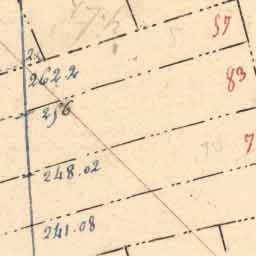 57
262.2
83
256
7
248.02
241.08